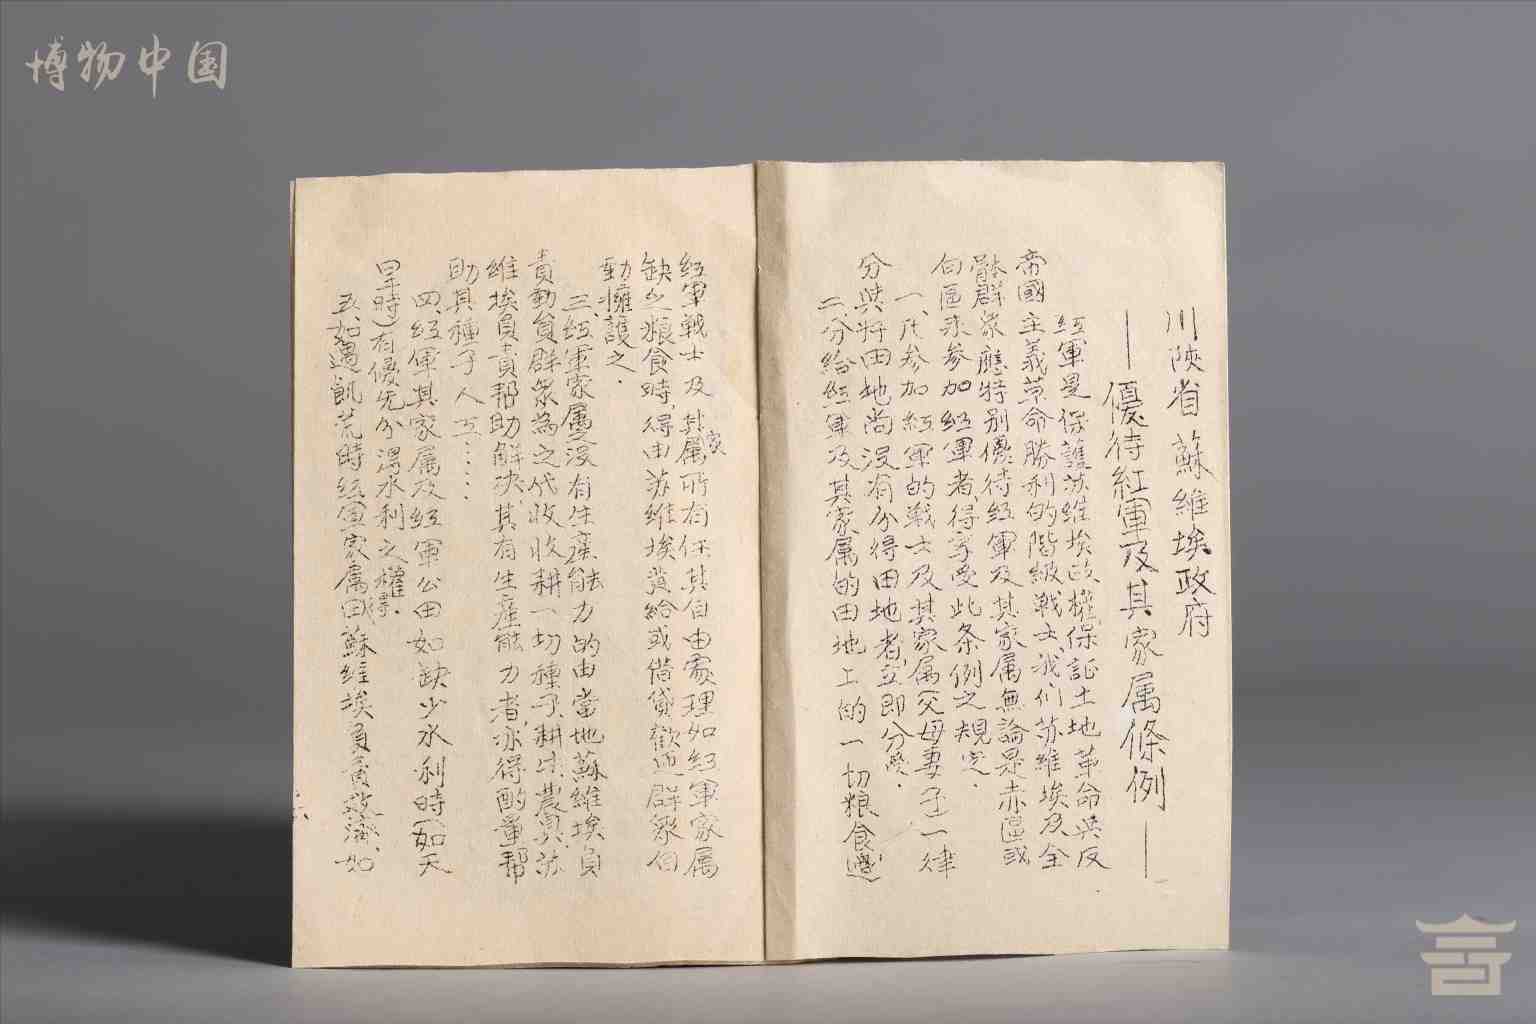 博物中国
川陝省蘇維埃政府
—優待紅軍及其家属條例—
紅軍是保護苏維埃政权保証土地革命与反
帝國主義革命勝利的階級战士,我们苏維埃及全
體群众應特别優待紅軍及其家属無論是赤區或
白區来参加紅軍者,得享受此条例之規定.
一、凡参加紅軍的战士及其家属父母妻子一律
分与好田地尚没有分得田地者,立即分受.
二、分給紅軍及其家属的田地上的一切粮食
紅軍战士及其家属所有任其自由處理如紅軍家属
缺乏粮食時,得由苏維埃發給或借貸歡迎群众自
動擁護之.
三、紅軍家属之没有生產能力的由當地蘇維埃負
責動員群众為之代收收耕一切種子耕牛農具,苏
維埃負責帮助解决,其有生產能力者,亦得酌量帮
助其種子人工……
四、紅軍其家属及紅軍公田如缺少水利時(如天
旱時)有優先分得水利之權.
五、如遇飢荒時紅軍家属由蘇維埃負責救濟,如